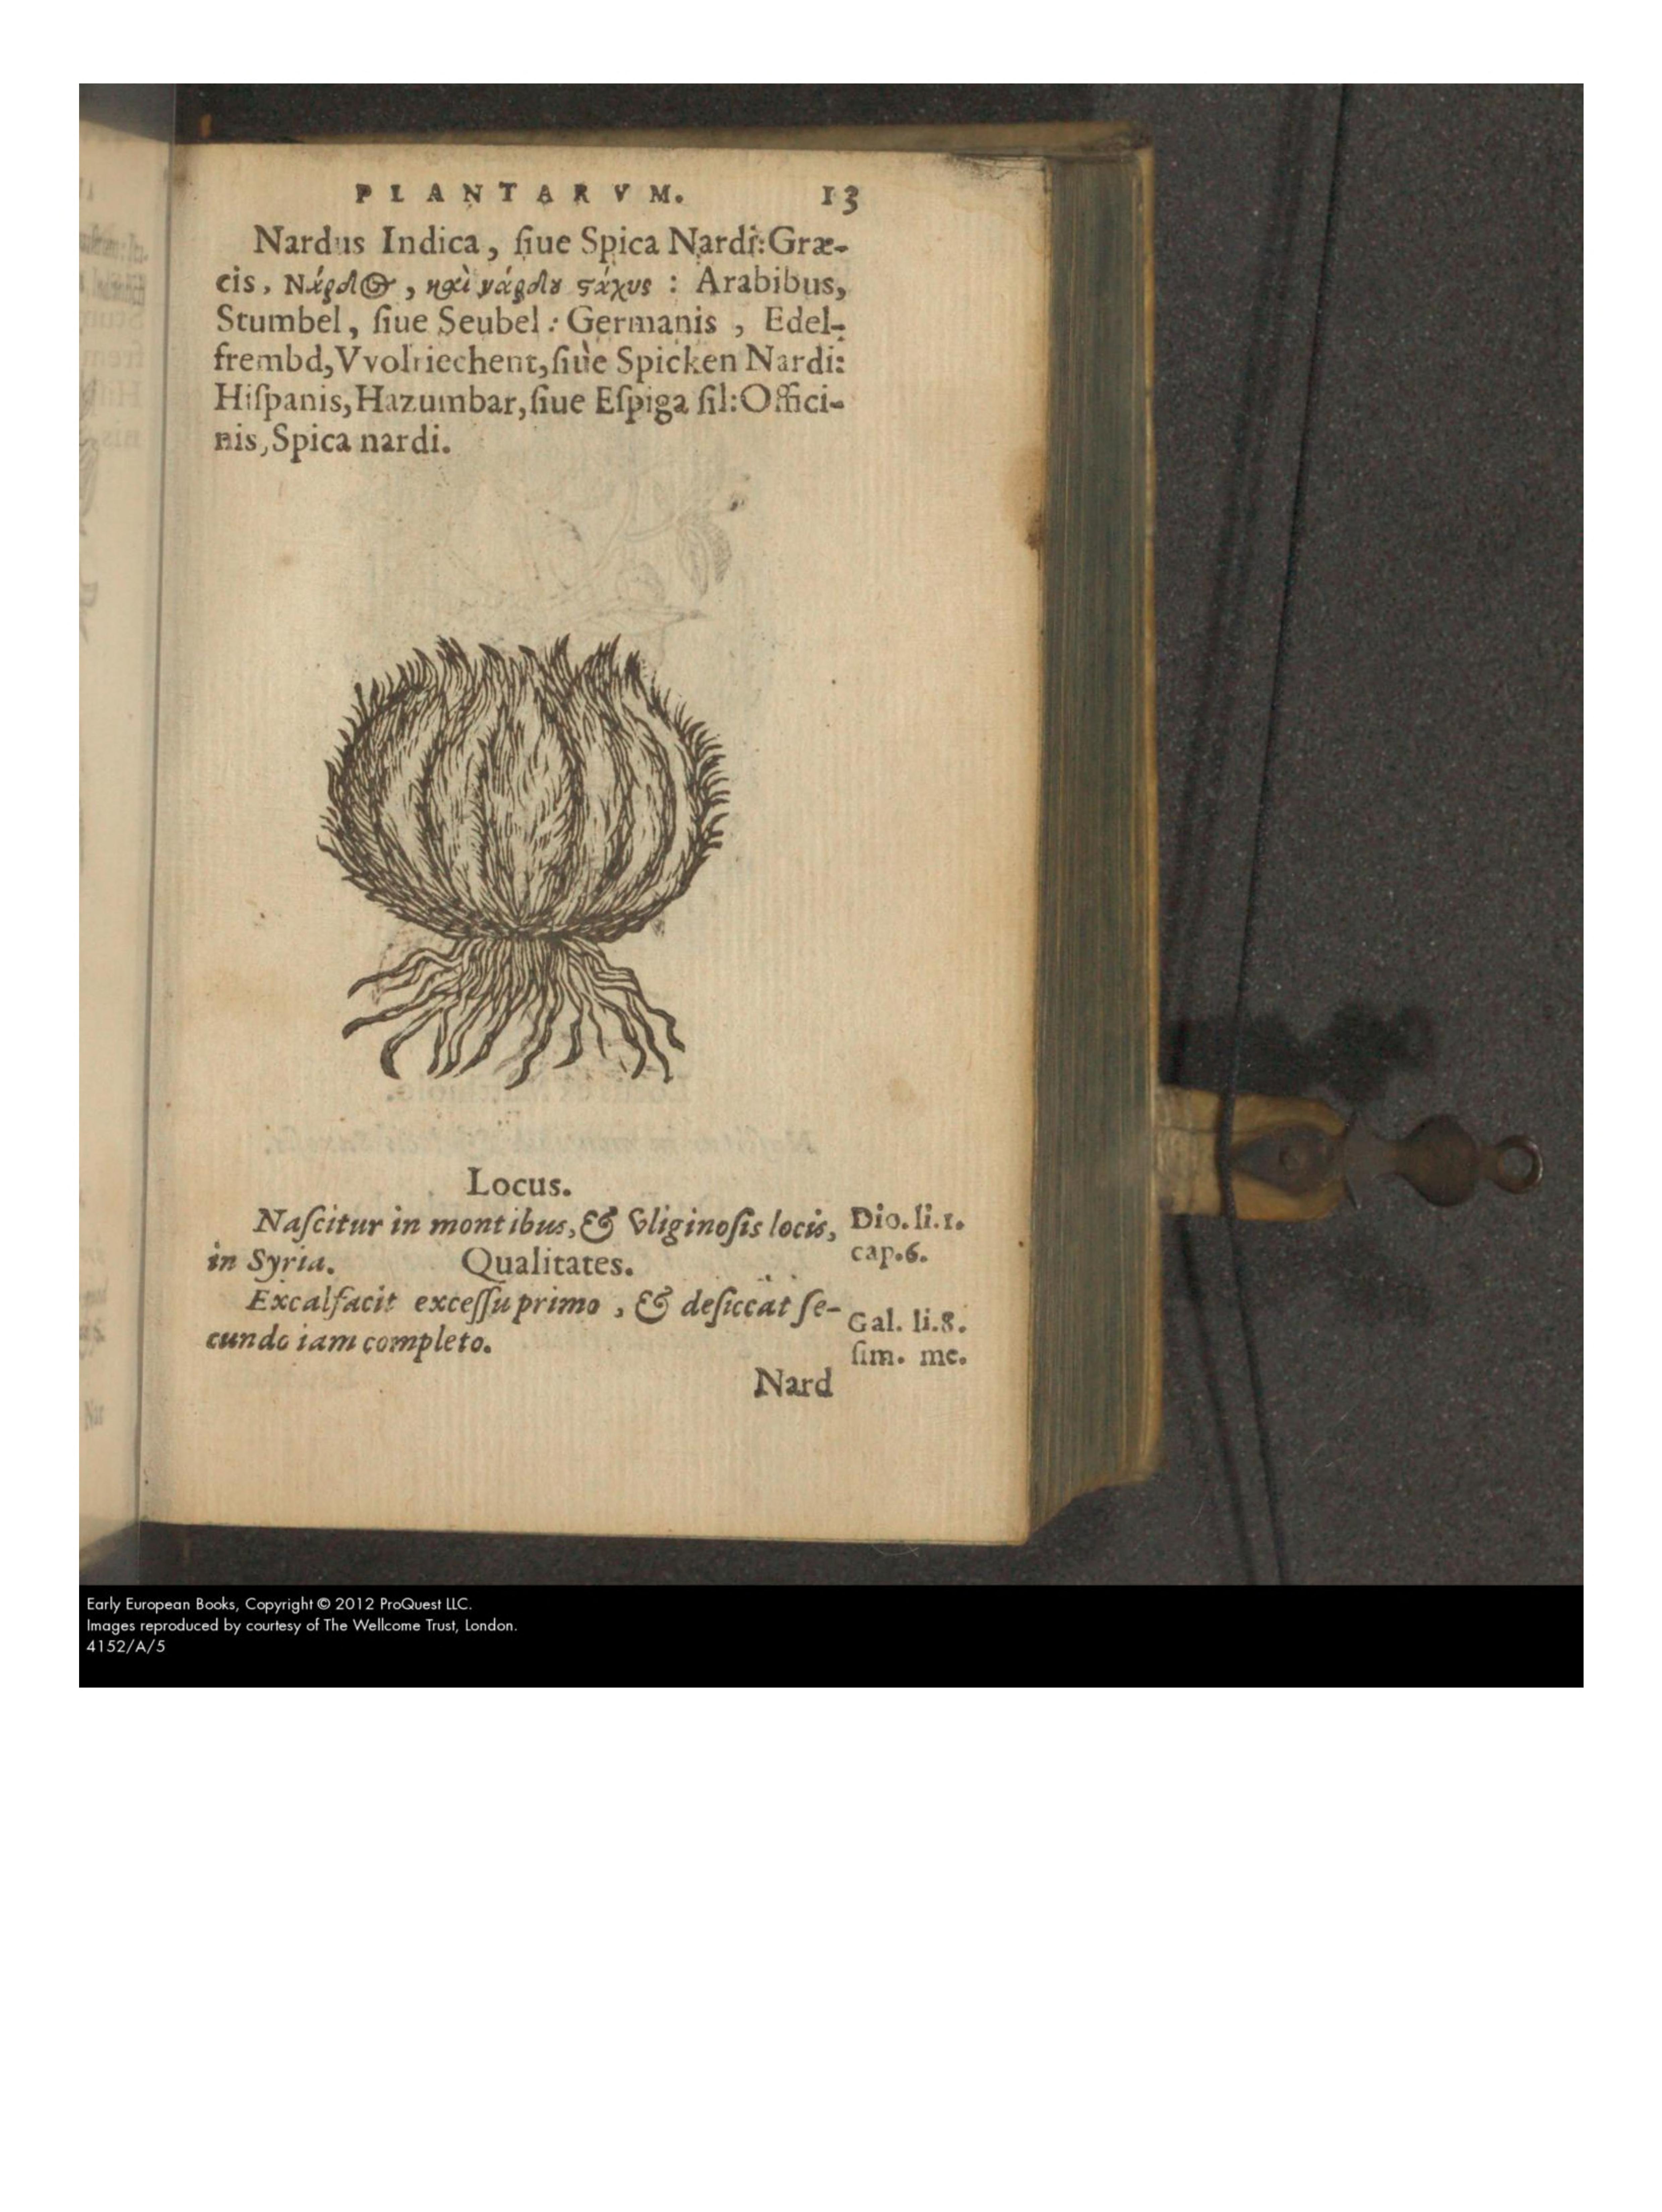 PLANTARVM. 13
Nardus Indica, ſiue Spica Nardi: Græ-
cis, Νάρδος, καὶ νάρδου στάχυς : Arabibus,
Stumbel, ſiue Seubel : Germanis, Edel-
frembd, Vvolriechent, ſiue Spicken Nardi:
Hiſpanis, Hazumbar, ſiue Eſpiga ſil: Offici-
nis, Spica nardi.
Locus.
Naſcitur in montibus, & vliginoſis locis,
Dio. li. 1.
in Syria. Qualitates.
cap. 6.
Excalfacit exceſſu primo, & deſiccat ſe-
Gal. li. 8.
cundo iam completo.
ſim. me.
Nard
Early European Books, Copyright © 2012 ProQuest LLC.
Images reproduced by courtesy of The Wellcome Trust, London.
4152/A/5